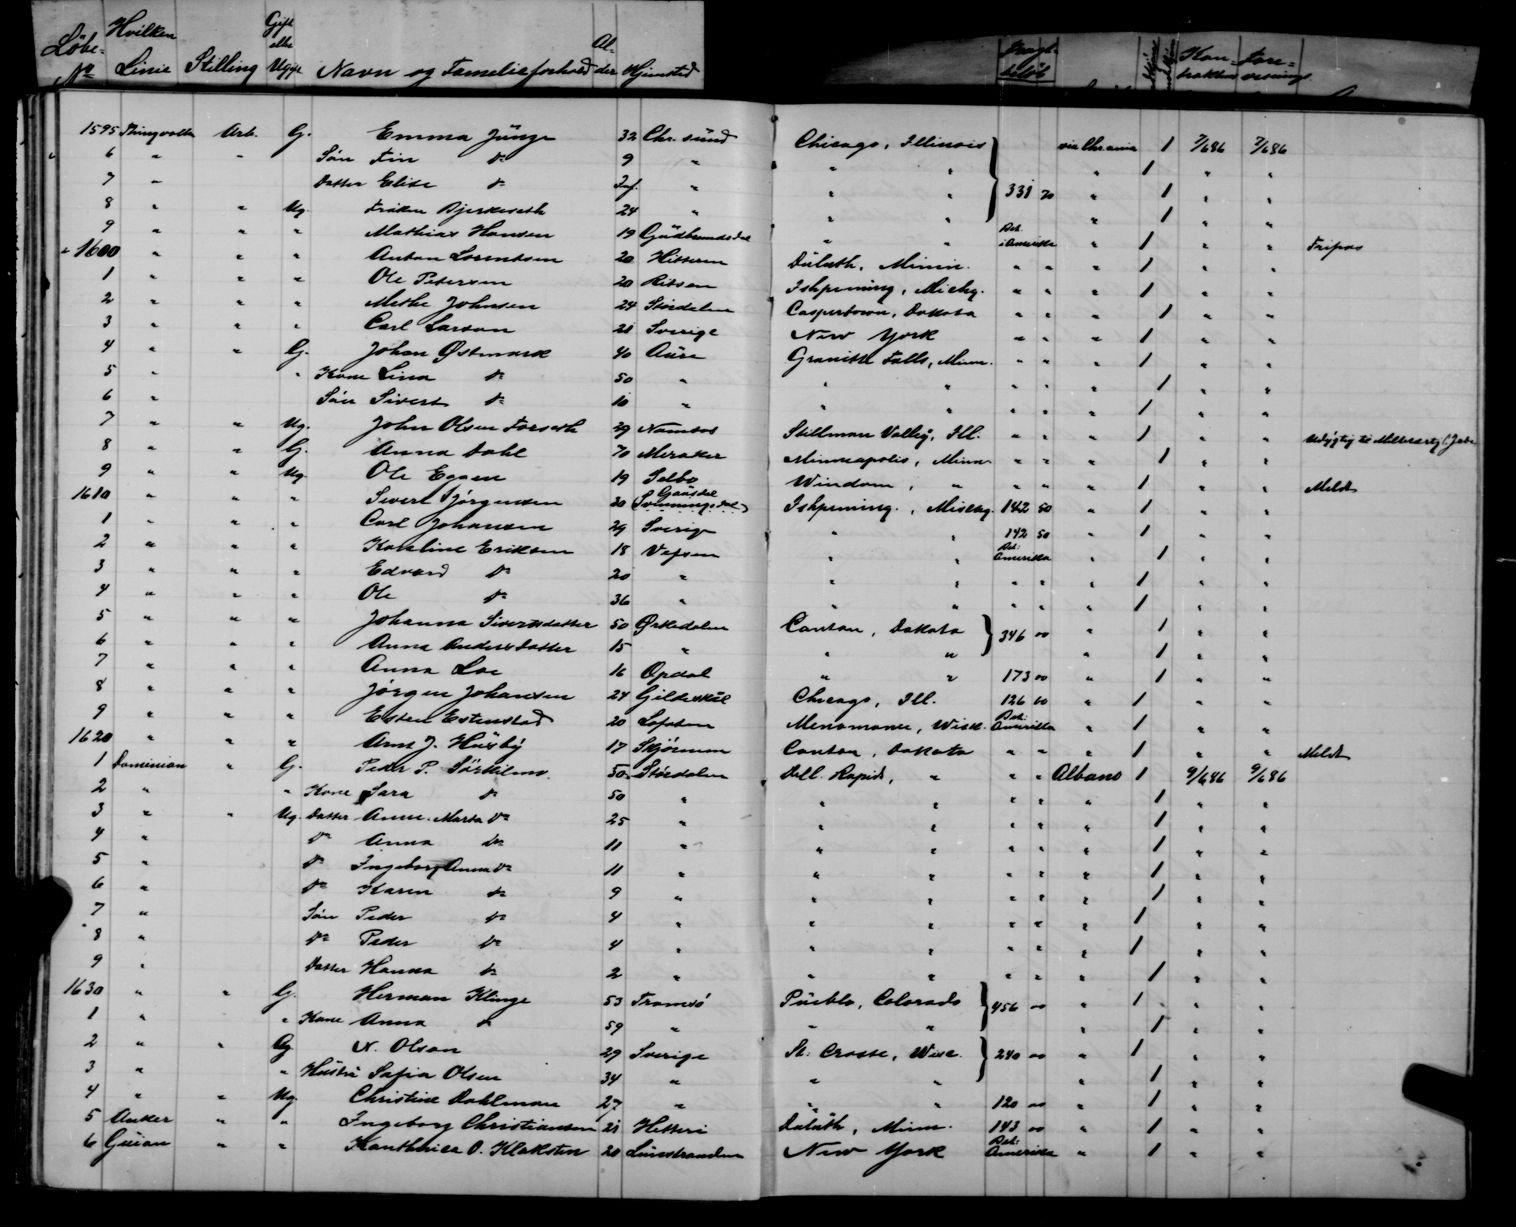 Löbe- No | Hvilken Linie | Stilling | Gift elle Ugift | Navn og Familieforhold | Al- der | Hjemsted | Kon- trakten
1595 Thingvalla Arb. G. Emma Jünge 32 Chr. sünd Chicago, Illinois via Chrania 1 7/6 86 7/6 86
6 " " Sön Fin do 9 " " " " 1 " "
7 " Datter Elise do Inf. " " " 331 70 " 1 " "
8 " " Ug. 24 " " " " 1 " "
9 " " " Mathias Hansen 19 Güdbrandsdal " " Bet. i Amerika " 1 " " Fripas
1600 " " " Anton Lorentsen 20 Hitteren Düluth, Minn. " " " 1 " "
1 " " " Ole Petersen 20 Ritsen Ishpeming, Michg. " " " 1 " "
2 " " " Methe Johnsen 24 Stördalen Casperstown, Dakota " " " 1 " "
3 " " " Carl Larson 21 Sverige New York " " " 1 " "
4 " " G. Johan Østmark 40 Aüre Granitte Falls, Minn. " " " 1 " "
5 " " Kone Lina do 50 " " " " " " 1 " "
6 " Sön Sivert do 10 " " " " " " 1 " "
7 " " Ug. John Olsen Forseth 29 Namsos Stillman Valley, Ill. " " " 1 " "
8 " " G. Anna Dahl 70 Meraker Minneapolis, Minn. " " " 1 " "
9 " " Ug. Ole Eggen 19 Selbo Windom, " " " " 1 " " Meldt
1610 " " " Sivert Jörgensen 20 Gausdal Ishpeming, Michg. 142 50 " 1 " "
1 " " " Carl Johansen 29 Sverige " " 142 50 " 1 " "
2 " " " Karoline Eriksen 18 Vefsen " " Bet: Amerika " 1 " "
3 " " " Edvard do 20 " " " " " " 1 " "
4 " " " Ole do 36 " " " " " " 1 " "
5 " " " Johanna Sivertsdatter 50 Ørkedalen Canton, Dakota 346 00 " 1 " "
6 " " " Anna Andersdatter 15 " " " " 1 " "
7 " " " Anna Loe 16 Opdal " " 173 00 " 1 " "
8 " " " Jörgen Johansen 24 Gildeskål Chicago, Ill. 126 60 " 1 " "
9 " " " Esten Estenstad 20 Lofoten Menomonee, Wisc. Bet: Amerika " 1 " "
1620 " " " Arnt J. Hüsby 17 Skjörnen Canton, Dakota " " " 1 " " Meldt
1 Dominion " G. Peder P. 50 Stördalen Dell Rapids, " " " Albano 1 9/6 86 9/6 86
2 " " Kone Sara do 50 " " " " " " 1 " "
3 " " Ug. Datter Anne Marta do 25 " " " " " " 1 " "
4 " do Anna do 11 " " " " " " 1 " "
5 " do Ingeborg Anna do 11 " " " " " " 1 " "
6 " do Karen do 9 " " " " " " 1 " "
7 " Sön Peder do 4 " " " " " " 1 " "
8 " do Peder do 4 " " " " " " 1 " "
9 " Datter Hanna do 2 " " " " " " 1 " "
1630 " " G. Herman Klinge 53 Tromsö Püeblo, Colorado 456 00 " 1 " "
1 " " Kone Anna do 59 " " " " 1 " "
2 " " G N. Olson 29 Sverige La Crosse, Wisc. 240 00 " 1 " "
3 " " Hüstrü Sofia Olsen 34 " " " " 1 " "
4 " " Ug. Christine Dahlman 27 " " " 120 00 " 1 " "
5 Anker " " Ingeborg Christiansen 21 Hitteri Düluth, Minn. 143 00 " 1 " "
6 Guion " " O. Klaksten 20 New York Bet: Amerika " 1 " "